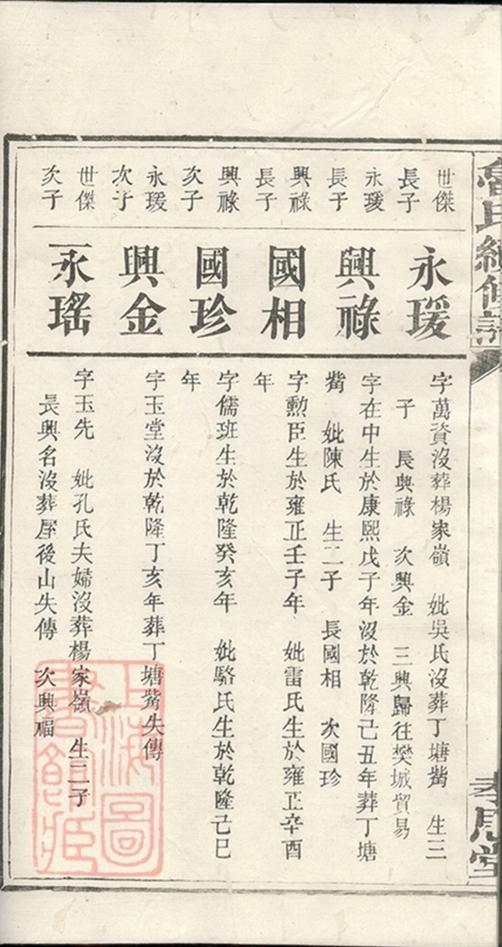 氏續修譜
堂
世傑
長子
永瑗
長子
興祿
長子
興祿
次子
永瑗
次子
世傑
次子
永瑗
興祿
國相
國珍
興金
永瑤
字萬資沒葬楊家嶺 妣吳氏沒葬丁塘觜 生三
子 長興祿 次興金 三興歸往樊城貿易
字在中生於康熙戊子年沒於乾隆己丑年葬丁塘
觜 妣陳氏 生二子 長國相 次國珍
字勲臣生於雍正壬子年 妣雷氏生於雍正辛酉
年
字儒班生於乾隆癸亥年 妣駱氏生於乾隆己巳
年
字玉堂沒於乾隆丁亥年葬丁塘觜失傳
字玉先 妣孔氏夫婦沒葬楊家嶺 生二子
長興名沒葬屋後山失傳 次興福
上海圖
書館藏